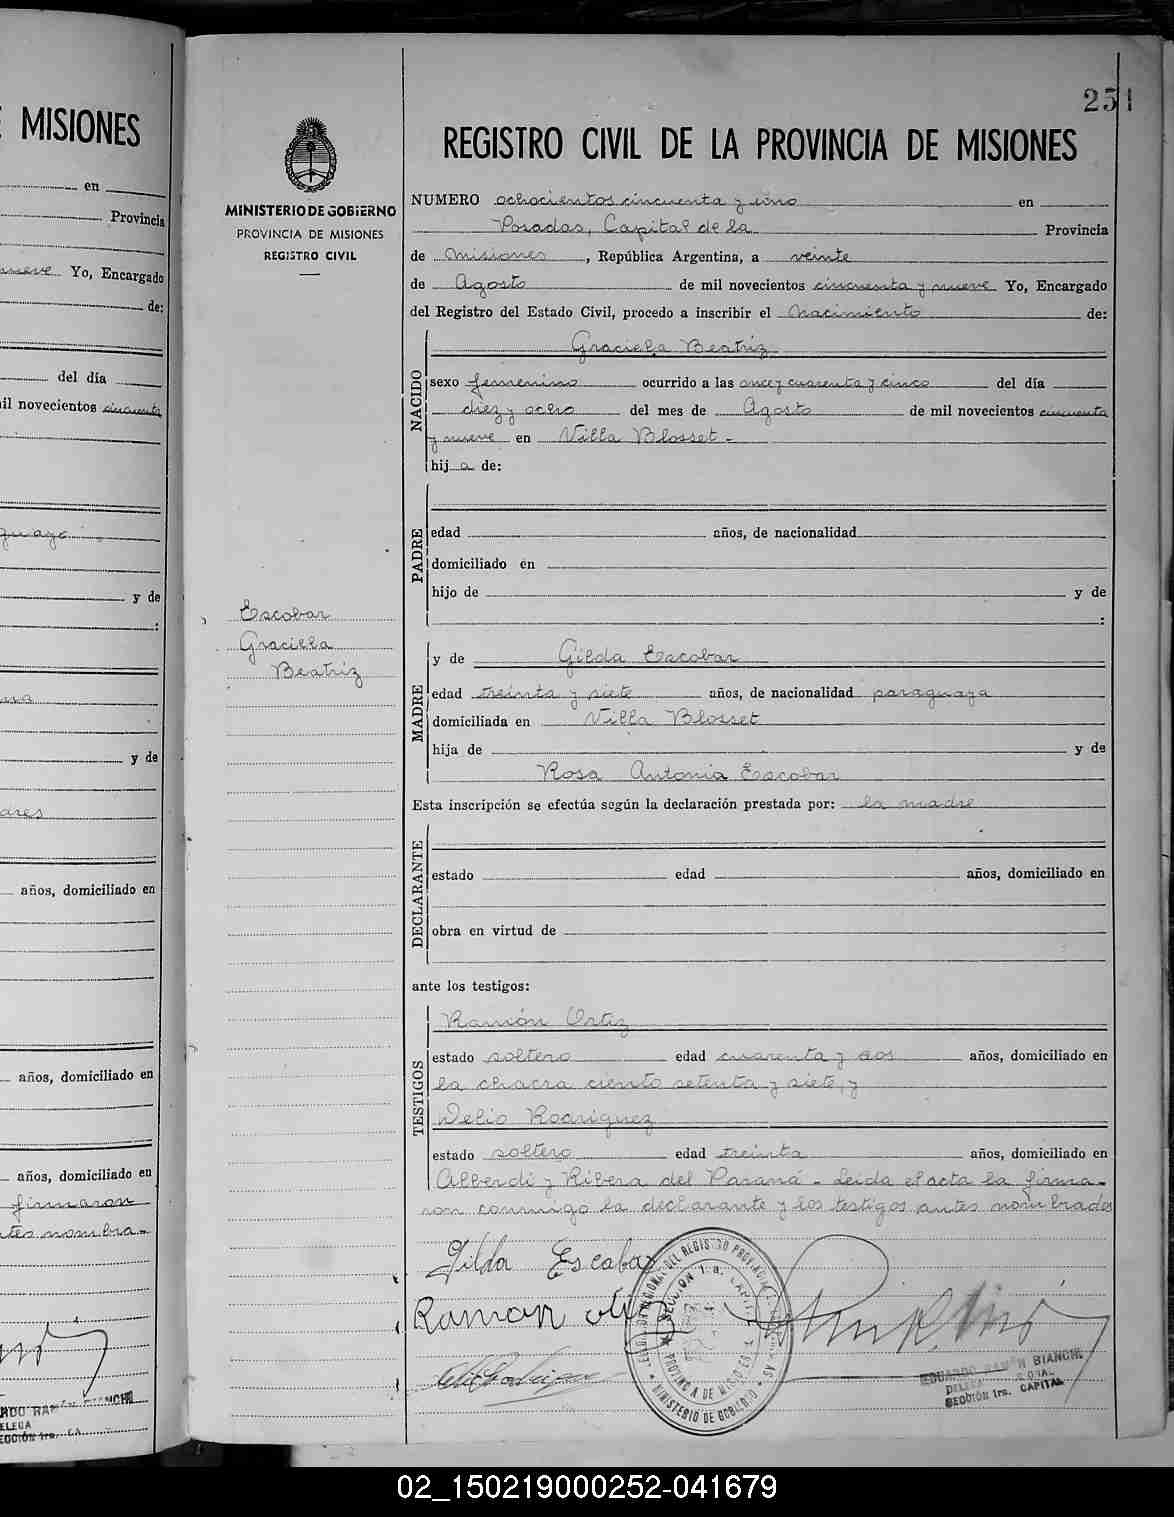 E MISIONES
en
Provincia
nueve Yo, Encargado
de:
del día
mil novecientos cincuenta
y de
:
y de
ares
años, domiciliado en
años, domiciliado en
años, domiciliado en
firmaron
tes nombra-
MINISTERIO DE GOBIERNO
PROVINCIA DE MISIONES
REGISTRO CIVIL
Escobar
Graciela
Beatriz
251
REGISTRO CIVIL DE LA PROVINCIA DE MISIONES
NUMERO ochocientos cincuenta y uno en
Posadas, Capital de la Provincia
de Misiones, República Argentina, a veinte
de Agosto de mil novecientos cincuenta y nueve Yo, Encargado
del Registro del Estado Civil, procedo a inscribir el Nacimiento de:
NACIDO
Graciela Beatriz
sexo femenino ocurrido a las once y cuarenta y cinco del día
diez y ocho del mes de Agosto de mil novecientos cincuenta
y nueve en Villa Blosset -
hija de:
PADRE
edad años, de nacionalidad
domiciliado en
hijo de y de
:
MADRE
y de Gilda Escobar
edad treinta y siete años, de nacionalidad paraguaya
domiciliada en Villa Blosset
hija de y de
Rosa Antonia Escobar
Esta inscripción se efectúa según la declaración prestada por: la madre
DECLARANTE
estado edad años, domiciliado en
obra en virtud de
ante los testigos:
TESTIGOS
Ramón Ortiz
estado soltero edad cuarenta y dos años, domiciliado en
la chacra ciento setenta y siete, y
Delio Rodriguez
estado soltero edad treinta años, domiciliado en
Alberdi y Ribera del Paraná - Leida el acta la firma-
ron conmigo la declarante y los testigos antes nombrados
Gilda Escobar
Ramon
EDUARDO RAMÓN BIANCHI
SECCIÓN 1ra. CAPITAL
02_150219000252-041679